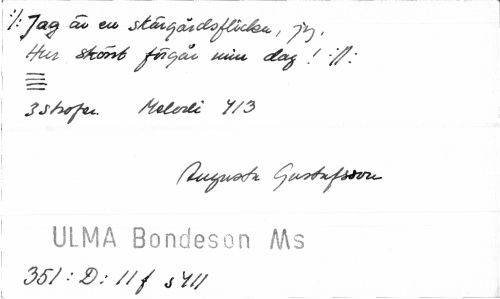 :/: Jag är en skärgårdsflicka, jij,
Hur skönt förgår min dag! :/:
3 strofer. Melodi 413
Augusta Gustafsson
ULMA Bondeson Ms
351:D:11 f s 411